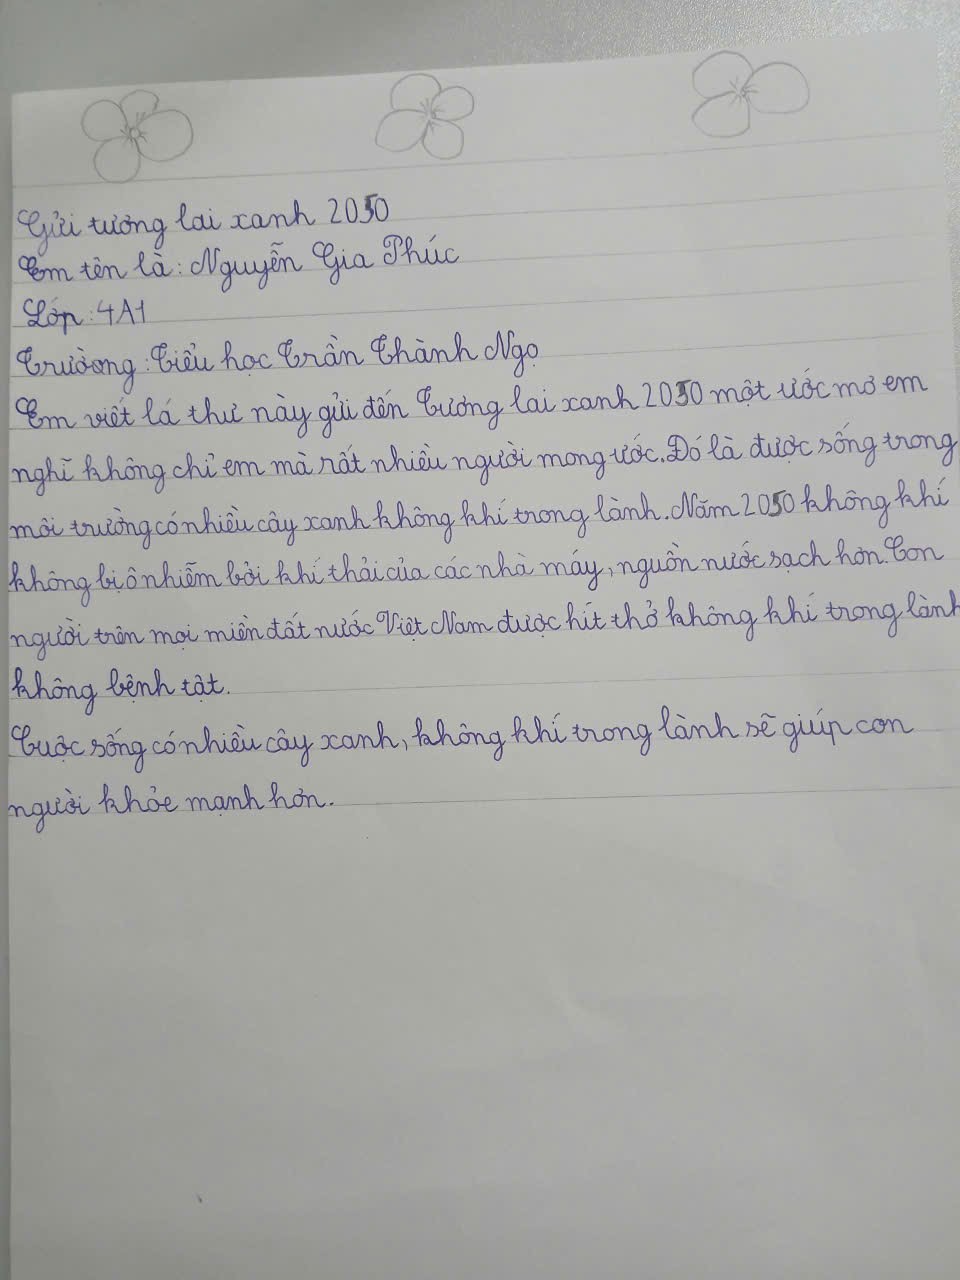 Gửi tương lai xanh 2050
Em tên là: Nguyễn Gia Phúc
Lớp: 4A1
Trường: Tiểu học Trần Thành Ngọ
Em viết lá thư này gửi đến Tương lai xanh 2050 một ước mơ em
nghĩ không chỉ em mà rất nhiều người mong ước. Đó là được sống trong
môi trường có nhiều cây xanh không khí trong lành. Năm 2050 không khí
không bị ô nhiễm bởi khí thải của các nhà máy, nguồn nước sạch hơn. Con
người trên mọi miền đất nước Việt Nam được hít thở không khí trong lành
không bệnh tật.
Cuộc sống có nhiều cây xanh, không khí trong lành sẽ giúp con
người khỏe mạnh hơn.